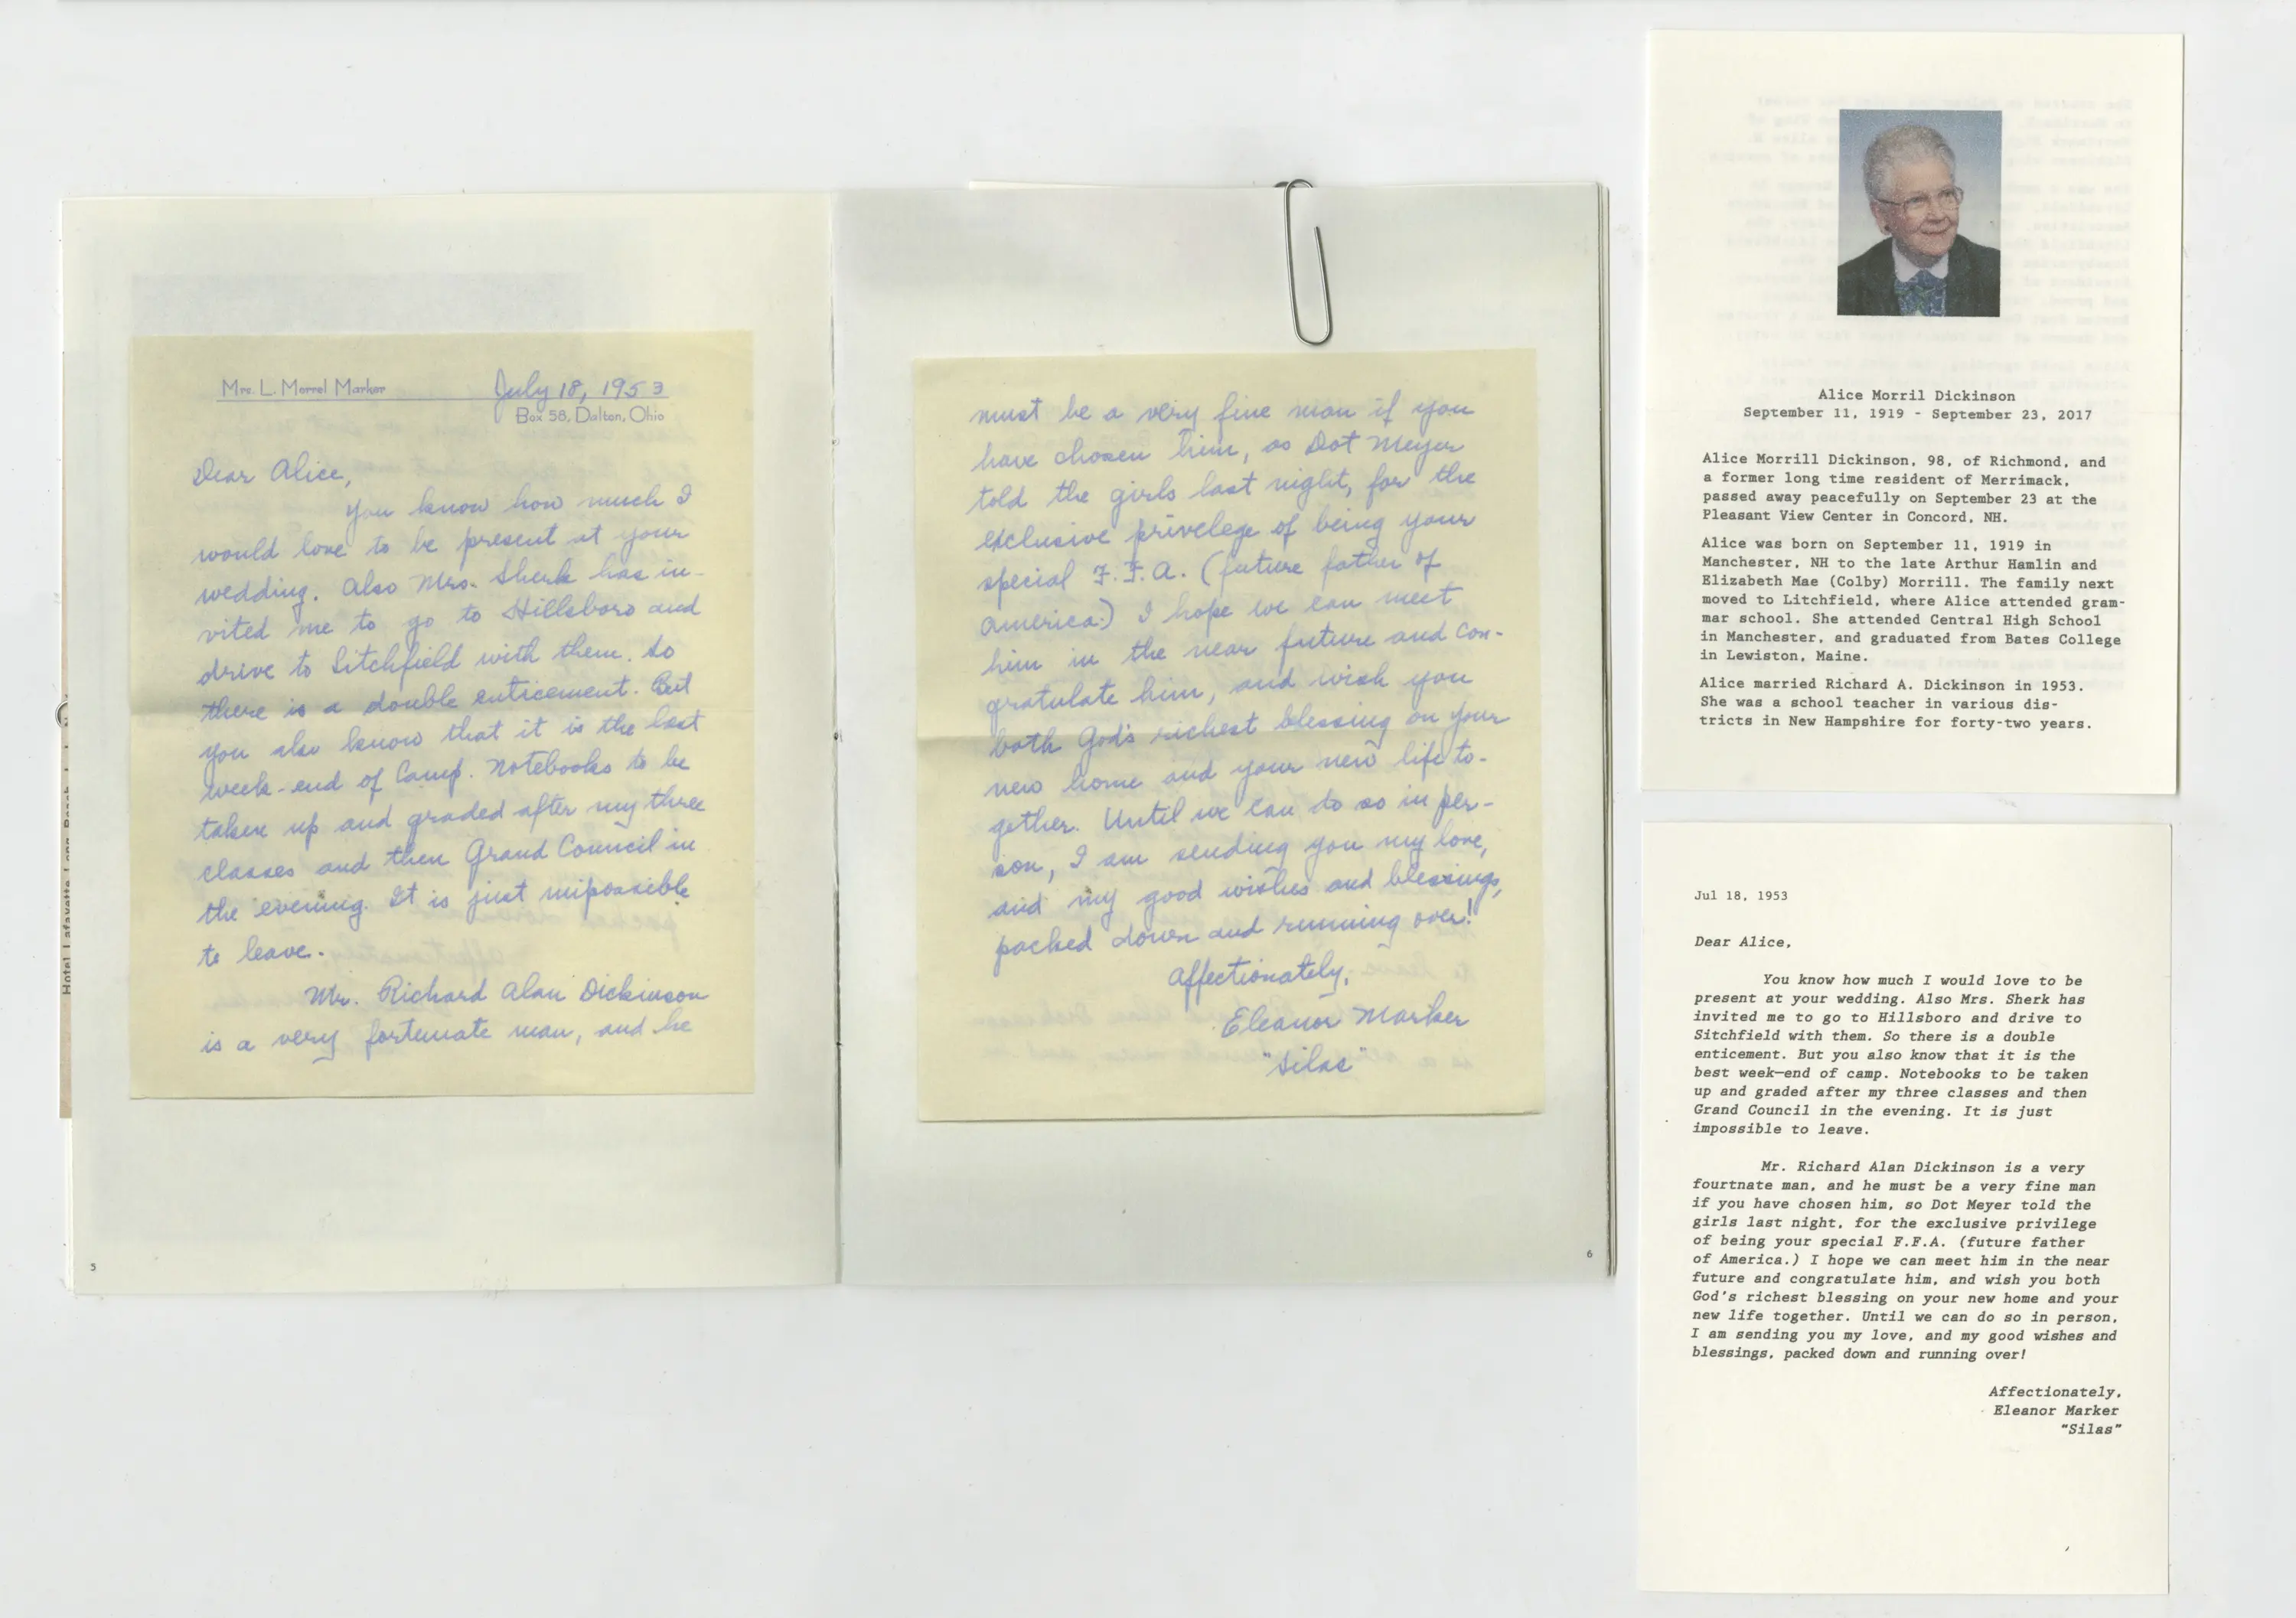 Mrs. L. Morrel Marker
July 18, 1953
Box 58, Dalton, Ohio
Dear Alice,
You know how much I
would love to be present at your
wedding. Also Mrs. Sherk has in-
vited me to go to Hillsboro and
drive to Litchfield with them. So
there is a double enticement. But
you also know that it is the last
week-end of Camp. Notebooks to be
taken up and graded after my three
classes and then Grand Council in
the evening. It is just impossible
to leave.
Mr. Richard Alan Dickinson
is a very fortunate man, and he
5
must be a very fine man if you
have chosen him, as Dot Meyer
told the girls last night, for the
exclusive privelege of being your
special F.F.A. (future father of
America.) I hope we can meet
him in the near future and con-
gratulate him, and wish you
both God's richest blessing on your
new home and your new life to-
gether. Until we can do so in per-
son, I am sending you my love,
and my good wishes and blessings,
packed down and running over!
Affectionately,
Eleanor Marker
"Silas"
6
Alice Morril Dickinson
September 11, 1919 - September 23, 2017
Alice Morrill Dickinson, 98, of Richmond, and
a former long time resident of Merrimack,
passed away peacefully on September 23 at the
Pleasant View Center in Concord, NH.
Alice was born on September 11, 1919 in
Manchester, NH to the late Arthur Hamlin and
Elizabeth Mae (Colby) Morrill. The family next
moved to Litchfield, where Alice attended gram-
mar school. She attended Central High School
in Manchester, and graduated from Bates College
in Lewiston, Maine.
Alice married Richard A. Dickinson in 1953.
She was a school teacher in various dis-
tricts in New Hampshire for forty-two years.
Jul 18, 1953
Dear Alice,
You know how much I would love to be
present at your wedding. Also Mrs. Sherk has
invited me to go to Hillsboro and drive to
Sitchfield with them. So there is a double
enticement. But you also know that it is the
best week—end of camp. Notebooks to be taken
up and graded after my three classes and then
Grand Council in the evening. It is just
impossible to leave.
Mr. Richard Alan Dickinson is a very
fourtnate man, and he must be a very fine man
if you have chosen him, so Dot Meyer told the
girls last night, for the exclusive privilege
of being your special F.F.A. (future father
of America.) I hope we can meet him in the near
future and congratulate him, and wish you both
God's richest blessing on your new home and your
new life together. Until we can do so in person,
I am sending you my love, and my good wishes and
blessings, packed down and running over!
Affectionately,
Eleanor Marker
“Silas”